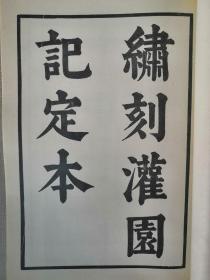 繡刻灌園
記定本